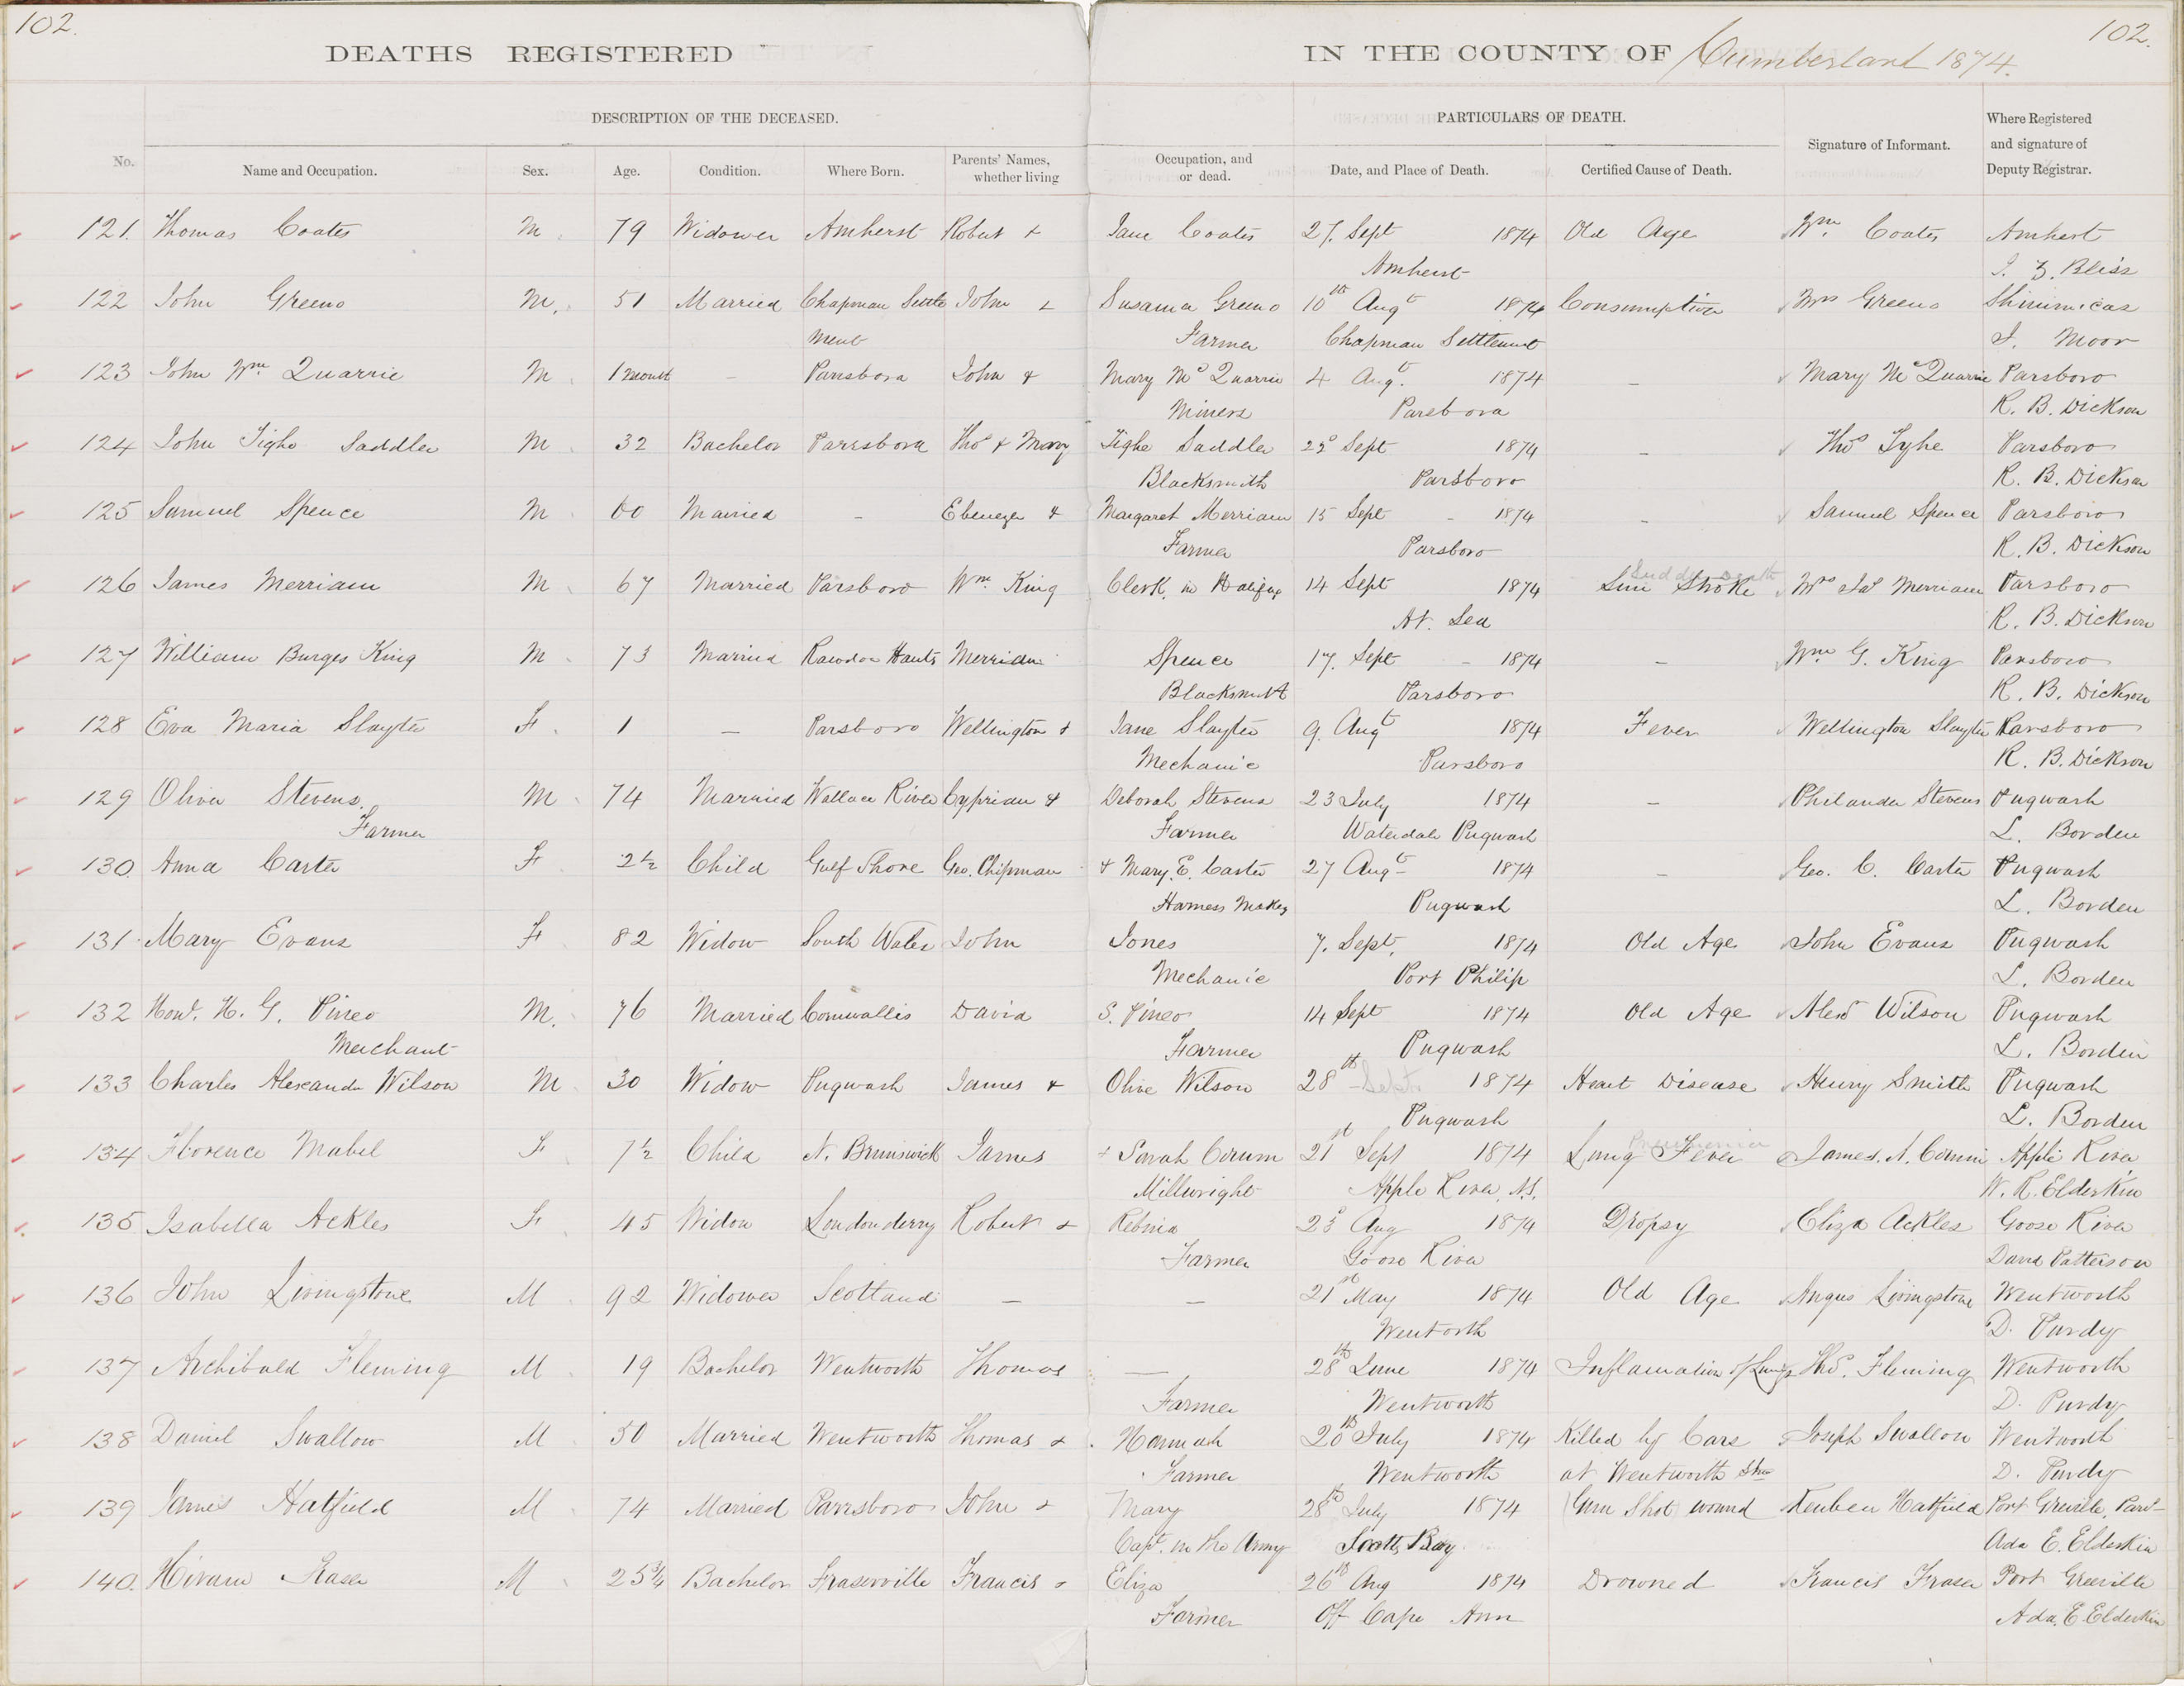 102.
102.
DEATHS REGISTERED IN THE COUNTY OF Cumberland 1874.
DESCRIPTION OF THE DECEASED. PARTICULARS OF DEATH.
No. Name and Occupation. Sex. Age. Condition. Where Born. Parents' Names, whether living Occupation, and or dead. Date, and Place of Death. Certified Cause of Death. Signature of Informant. Where Registered and signature of Deputy Registrar.
121. Thomas Coates M 79 Widower Amherst Robert + Jane Coates 27. Sept 1874 Old Age Wm. Coates Amherst
Amherst Bliss
122 John Greeno M. 51 Married Chapman Settle John + Susanna Greeno 10th Augt 1874 Consumption Greeno Shinimicas
ment Farmer Chapman Settlement Moor
123 John Wm. Quarrie M 1 month - Parsboro John + Mary Mc Quarrie 4 Augt. 1874 - Mary Mc Quarrie Parsboro
Miners Parsboro R. B. Dickson
124 John Tighe Saddler M 32 Bachelor Parrsboro Thos + Mary Tighe Saddler Sept 1874 - Thos Tyhe Parsboro
Blacksmith Parsboro R. B. Dickson
125 Samuel Spence M 60 Married - Ebenezer + Margaret Merriam 15 Sept - 1874 - Samuel Spence Parsboro
Farmer Parsboro R. B. Dickson
Sudden Death
126 James Merriam M 67 Married Parsboro Wm. King Clerk in Halifax 14 Sept 1874 Sun Stroke Mrs Jas Merriam Parsboro
At. Sea R. B. Dickson
127 William Burges King M 73 Married Rawdon Hants Merriam Spence 17. Sept - 1874 - Wm G. King Parsboro
Blacksmith Parsboro R. B. Dickson
128 Eva Maria Slayter F. 1 - Parsboro Wellington + Jane Slayter 9. Augt 1874 Fever Wellington Slayter Parsboro
Mechanic Parsboro R. B. Dickson
129 Oliver Stevens. M 74 Married Wallace River Cyprian + Deborah Stevens 23 July 1874 - Philander Stevens Pugwash
Farmer Farmer Waterdale Pugwash L. Borden
130. Anna Carter F 2½ Child Gulf Shore Geo. Chipman + Mary. E. Carter 27 Augt 1874 - Geo. C. Carter Pugwash
Harness Maker Pugwash L. Borden
131 Mary Evans F 82 Widow South Wales John Jones 7. Sept. 1874 Old Age John Evans Pugwash
Mechanic Port Philip L. Borden
132 Hon. H. G. Pineo M. 76 Married Cornwallis David S. Pineo 14 Sept 1874 Old Age Alexr Wilson Pugwash
Merchant Farmer Pugwash L. Borden
133 Charles Alexander Wilson M 30 Widow Pugwash James + Olive Wilson 28th Sept. 1874 Heart Disease Henry Smith Pugwash
Pugwash L. Borden
Pneumonia
134 Florence Mabel F 7½ Child N. Brunswick James + Sarah 21st Sept 1874 Lung Fever James. N. Apple River
Millwright Apple River, N.S. W. R. Elderkin
135 Isabella Ackles F. 45 Widow Londonderry Robert + 23d Aug 1874 Dropsy Eliza Ackles Goose River
Farmer Goose River David Patterson
136 John Livingstone M 92 Widower Scotland - - 21st May 1874 Old Age Angus Livingstone Wentworth
Wentworth D. Purdy
137 Archibald Fleming M 19 Bachelor Wentworth Thomas - 28th June 1874 Inflamation of Lungs Thos. Fleming Wentworth
Farmer Wentworth D. Purdy
138 Daniel Swallow M 50 Married Wentworth Thomas + Hannah 20th July 1874 Killed by Cars Joseph Swallow Wentworth
Farmer Wentworth at Wentworth Stn D. Purdy
139 James Hatfield M 74 Married Parrsboro John + Mary 28th July 1874 Gun Shot wound Reuben Hatfield Port Greville,
Capt. in the Army Scotts Bay Ada E. Elderkin
140. Hiram Fraser M 25¾ Bachelor Fraserville Francis + Eliza 26th Aug 1874 Drowned Francis Fraser Port Greville
Farmer Off Cape Ann Ada. E. Elderkin